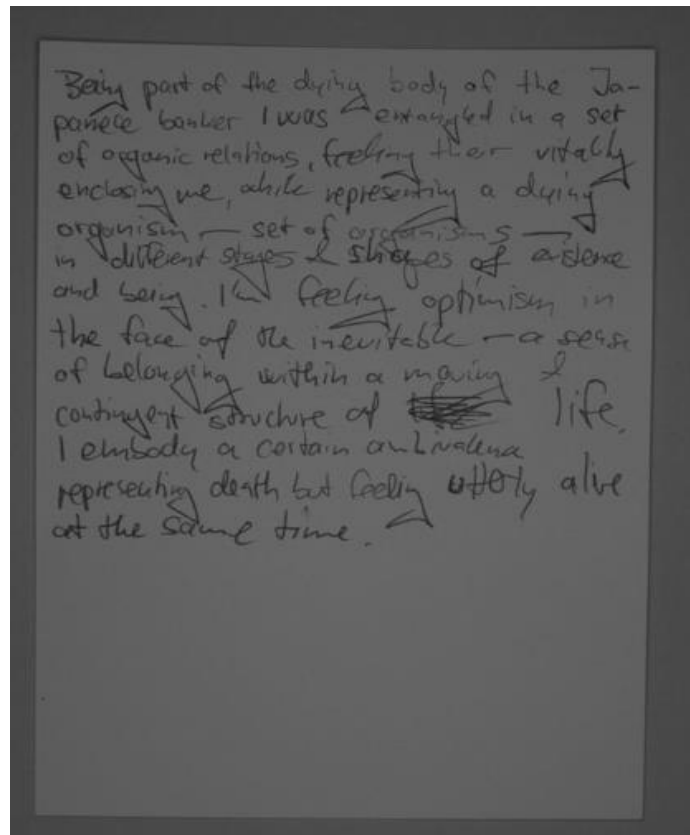 Being part of the dying body of the Ja-
panese banker I was entangled in a set
of organic relations, feeling their vitality
enclosing me, while representing a dying
organism — set of organisms —
in different stages & shapes of existence
and being. I'm feeling optimism in
the face of the inevitable — a sense
of belonging within a moving &
contingent structure of life.
I embody a certain ambivalence
representing death but feeling utterly alive
at the same time.